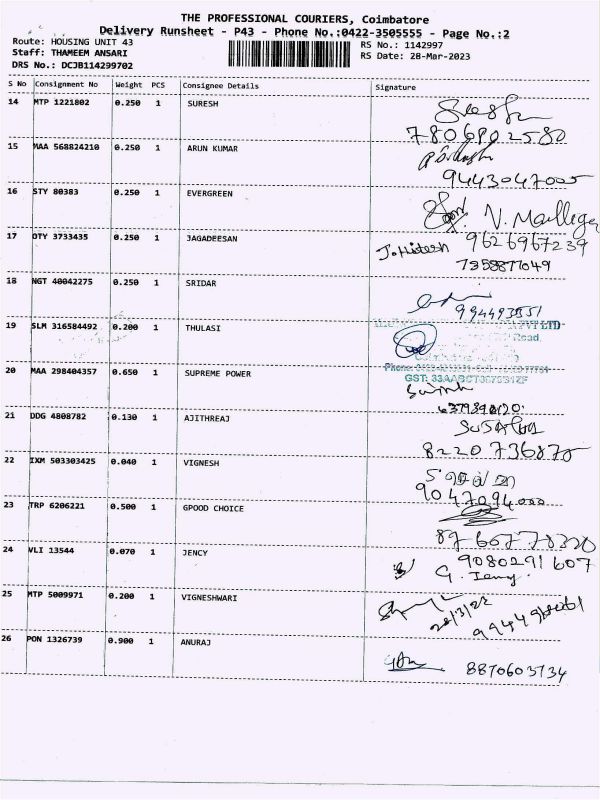 THE PROFESSIONAL COURIERS, Coimbatore
Delivery Runsheet - P43 - Phone No.:0422-3505555 - Page No.:2
Route: HOUSING UNIT 43 RS No.: 1142997
Staff: THAMEEM ANSARI RS Date: 28-Mar-2023
DRS No.: DCJB114299702
S No Consignment No Weight PCS Consignee Details Signature
14 MTP 1221802 0.250 1 SURESH
7806802580
15 MAA 568824210 0.250 1 ARUN KUMAR
9443047005
16 STY 80383 0.250 1 EVERGREEN
17 OTY 3733435 0.250 1 JAGADEESAN J. Hitesh 9626967239
7358877049
18 NGT 40042275 0.250 1 SRIDAR
19 SLM 316584492 0.200 1 THULASI
PVT LTD
Road,
20 MAA 298404357 0.650 1 SUPREME POWER
21 DDG 4808782 0.130 1 AJITHREAJ
8220736875
22 IXM 503303425 0.040 1 VIGNESH
9047094000
23 TRP 6206221 0.500 1 GPOOD CHOICE
24 VLI 13544 0.070 1 JENCY 9080291607
G. Jency
25 MTP 5009971 0.200 1 VIGNESHWARI
28/3/23
26 PON 1326739 0.900 1 ANURAJ
8870603734